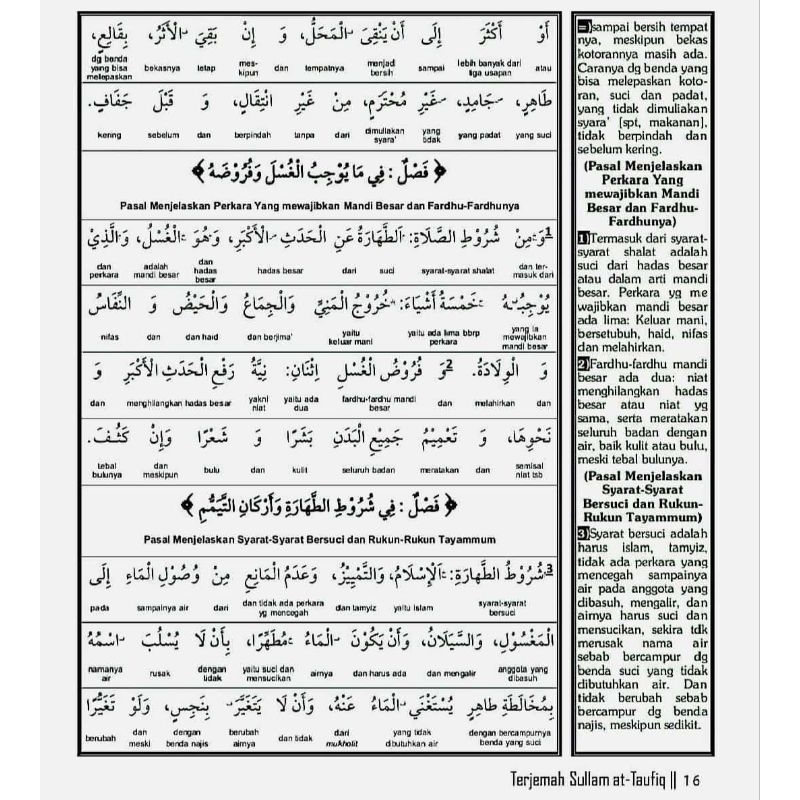 أَوْ أَكْثَرَ إِلَى أَنْ يَنْقَى الْمَحَلُّ، وَ إِنْ بَقِيَ الْأَثَرُ، بِقَالِعٍ،
atau lebih banyak dari tiga usapan sampai menjadi bersih tempatnya dan meskipun tetap bekasnya dg benda yang bisa melepaskan
طَاهِرٍ، جَامِدٍ، غَيْرِ مُحْتَرَمٍ، مِنْ غَيْرِ انْتِقَالٍ، وَ قَبْلَ جَفَافٍ.
yang suci yang padat yang tidak dimuliakan syara' dari tanpa berpindah dan sebelum kering
﴿ فَصْلٌ : فِي مَا يُوْجِبُ الْغُسْلَ وَفُرُوْضَهُ ﴾
Pasal Menjelaskan Perkara Yang mewajibkan Mandi Besar dan Fardhu-Fardhunya
1وَمِنْ شُرُوْطِ الصَّلَاةِ: اَلطَّهَارَةُ عَنِ الْحَدَثِ الْأَكْبَرِ، وَهُوَ الْغُسْلُ، وَالَّذِيْ
dan termasuk dari syarat-syarat shalat suci dari hadas besar dan hadas besar adalah mandi besar dan perkara
يُوْجِبُهُ خَمْسَةُ أَشْيَاءَ: خُرُوْجُ الْمَنِيِّ وَالْجِمَاعُ وَالْحَيْضُ وَ النِّفَاسُ
yang ia mewajibkan mandi besar yaitu ada lima bbrp perkara yaitu keluar mani dan berjima' dan haid dan nifas
وَ الْوِلَادَةُ. 2وَ فُرُوْضُ الْغُسْلِ اِثْنَانِ: نِيَّةُ رَفْعِ الْحَدَثِ الْأَكْبَرِ وَ
dan melahirkan dan fardhu-fardhu mandi besar yaitu ada dua yakni niat menghilangkan hadas besar dan
نَحْوِهَا، وَ تَعْمِيْمُ جَمِيْعِ الْبَدَنِ بَشَرًا وَ شَعْرًا وَإِنْ كَثُفَ.
semisal niat tsb dan meratakan seluruh badan kulit dan bulu dan meskipun tebal bulunya
﴿ فَصْلٌ : فِي شُرُوْطِ الطَّهَارَةِ وَأَرْكَانِ التَّيَمُّمِ ﴾
Pasal Menjelaskan Syarat-Syarat Bersuci dan Rukun-Rukun Tayammum
3شُرُوْطُ الطَّهَارَةِ: اَلْإِسْلَامُ، وَالتَّمْيِيْزُ، وَعَدَمُ الْمَانِعِ مِنْ وُصُوْلِ الْمَاءِ إِلَى
syarat-syarat bersuci yaitu islam dan tamyiz dan tidak ada perkara yg mencegah dari sampainya air pada
الْمَغْسُوْلِ، وَالسَّيَلَانُ، وَأَنْ يَكُوْنَ الْمَاءُ مُطَهِّرًا، بِأَنْ لَا يُسْلَبَ اسْمُهُ
anggota yang dibasuh dan mengalir dan harus ada airnya yaitu suci dan mensucikan dengan tidak rusak namanya air
بِمُخَالَطَةِ طَاهِرٍ يُسْتَغْنِي الْمَاءُ عَنْهُ، وَأَنْ لَا يَتَغَيَّرَ بِنَجِسٍ، وَلَوْ تَغَيُّرًا
dengan bercampurnya benda yang suci yang tidak dibutuhkan air dari mukholit dan tidak berubah airnya dengan benda najis dan meski berubah
=)sampai bersih tempat
nya, meskipun bekas
kotorannya masih ada.
Caranya dg benda yang
bisa melepaskan koto-
ran, suci dan padat,
yang tidak dimuliakan
syara' [spt, makanan],
tidak berpindah dan
sebelum kering.
(Pasal Menjelaskan
Perkara Yang
mewajibkan Mandi
Besar dan Fardhu-
Fardhunya)
1)Termasuk dari syarat-
syarat shalat adalah
suci dari hadas besar
atau dalam arti mandi
besar. Perkara yg me
wajibkan mandi besar
ada lima: Keluar mani,
bersetubuh, haid, nifas
dan melahirkan.
2)Fardhu-fardhu mandi
besar ada dua: niat
menghilangkan hadas
besar atau niat yg
sama, serta meratakan
seluruh badan dengan
air, baik kulit atau bulu,
meski tebal bulunya.
(Pasal Menjelaskan
Syarat-Syarat
Bersuci dan Rukun-
Rukun Tayammum)
3)Syarat bersuci adalah
harus islam, tamyiz,
tidak ada perkara yang
mencegah sampainya
air pada anggota yang
dibasuh, mengalir, dan
airnya harus suci dan
mensucikan, sekira tdk
merusak nama air
sebab bercampur dg
benda suci yang tidak
dibutuhkan air. Dan
tidak berubah sebab
bercampur dg benda
najis, meskipun sedikit.
Terjemah Sullam at-Taufiq || 16